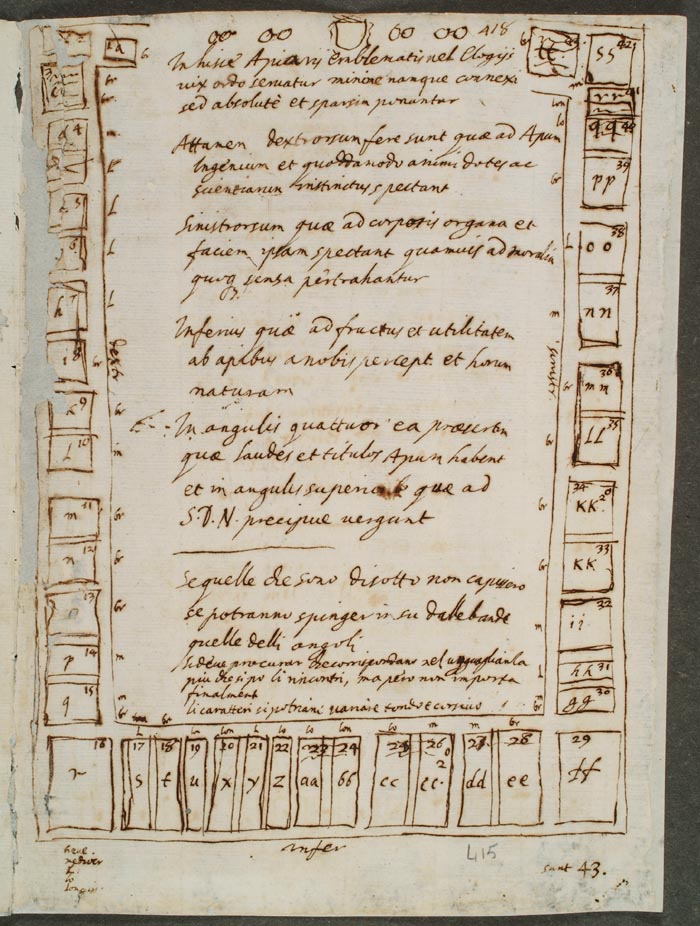 418
In hisce Apiarijs Emblematis vel Elogijs
vix ordo servatur minime namque connexi
sed absolutè et sparsim ponuntur
Attamen dextrorsum fere sunt quæ ad Apum
Ingenium et quoddanodo animi dotes ac
scientiarum instinctus spectant
Sinistrorsum quæ ad corporis organa et
faciem ipsam spectant quamvis ad moralia
quoq sensa pertrahantur
Inferius quæ ad fructus et utilitatem
ab apibus a nobis percept. et horum
naturam
In angulis quattuor ea præsertim
quæ laudes et titulos Apum habent
et in angulis superio quæ ad
S.D.N. precipue vergunt
Se quelle che sono di sotto non capissero
se potranno spinger in su dalle bande
quelle delli angoli
si deve procurar che corrispondano nel uguaglianza
più che si po li rincontri, ma però non importa
finalment
li caratteri si potriano variare tondo e corsivo
dextr
sinistr
1 a
4
5
6
h 7
8
9
l 10
m 11
n 12
13
p 14
q 15
r 16
17 s
18 t
19 u
20 x
21 y
22 z
aa
24 bb
cc
26 cc. 2
dd
28 ee
29 ff
gg 30
hh 31
ii 32
KK 33
34 KK 2
LL 35
mm 36
nn 37
oo 38
pp 39
qq 40
rr 41
ss 42
infer
415
sunt 43.